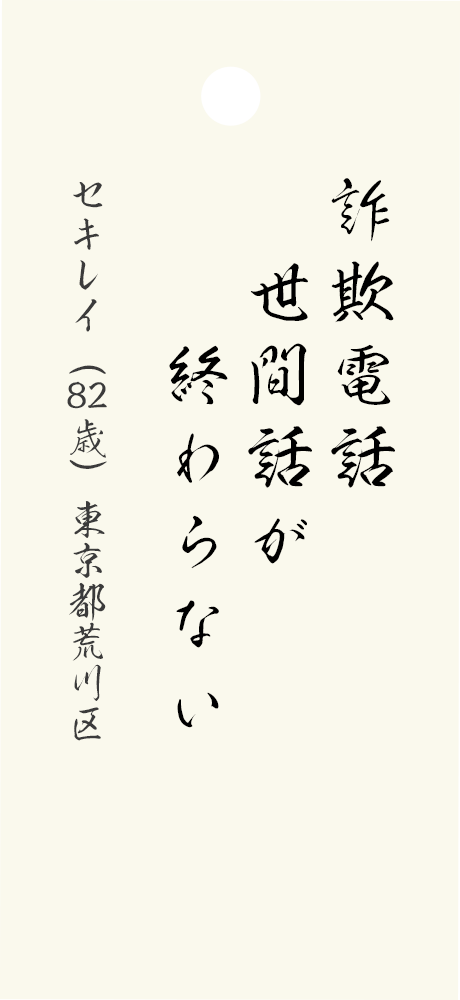 詐欺電話
世間話が
終わらない
セキレイ（82歳）東京都荒川区